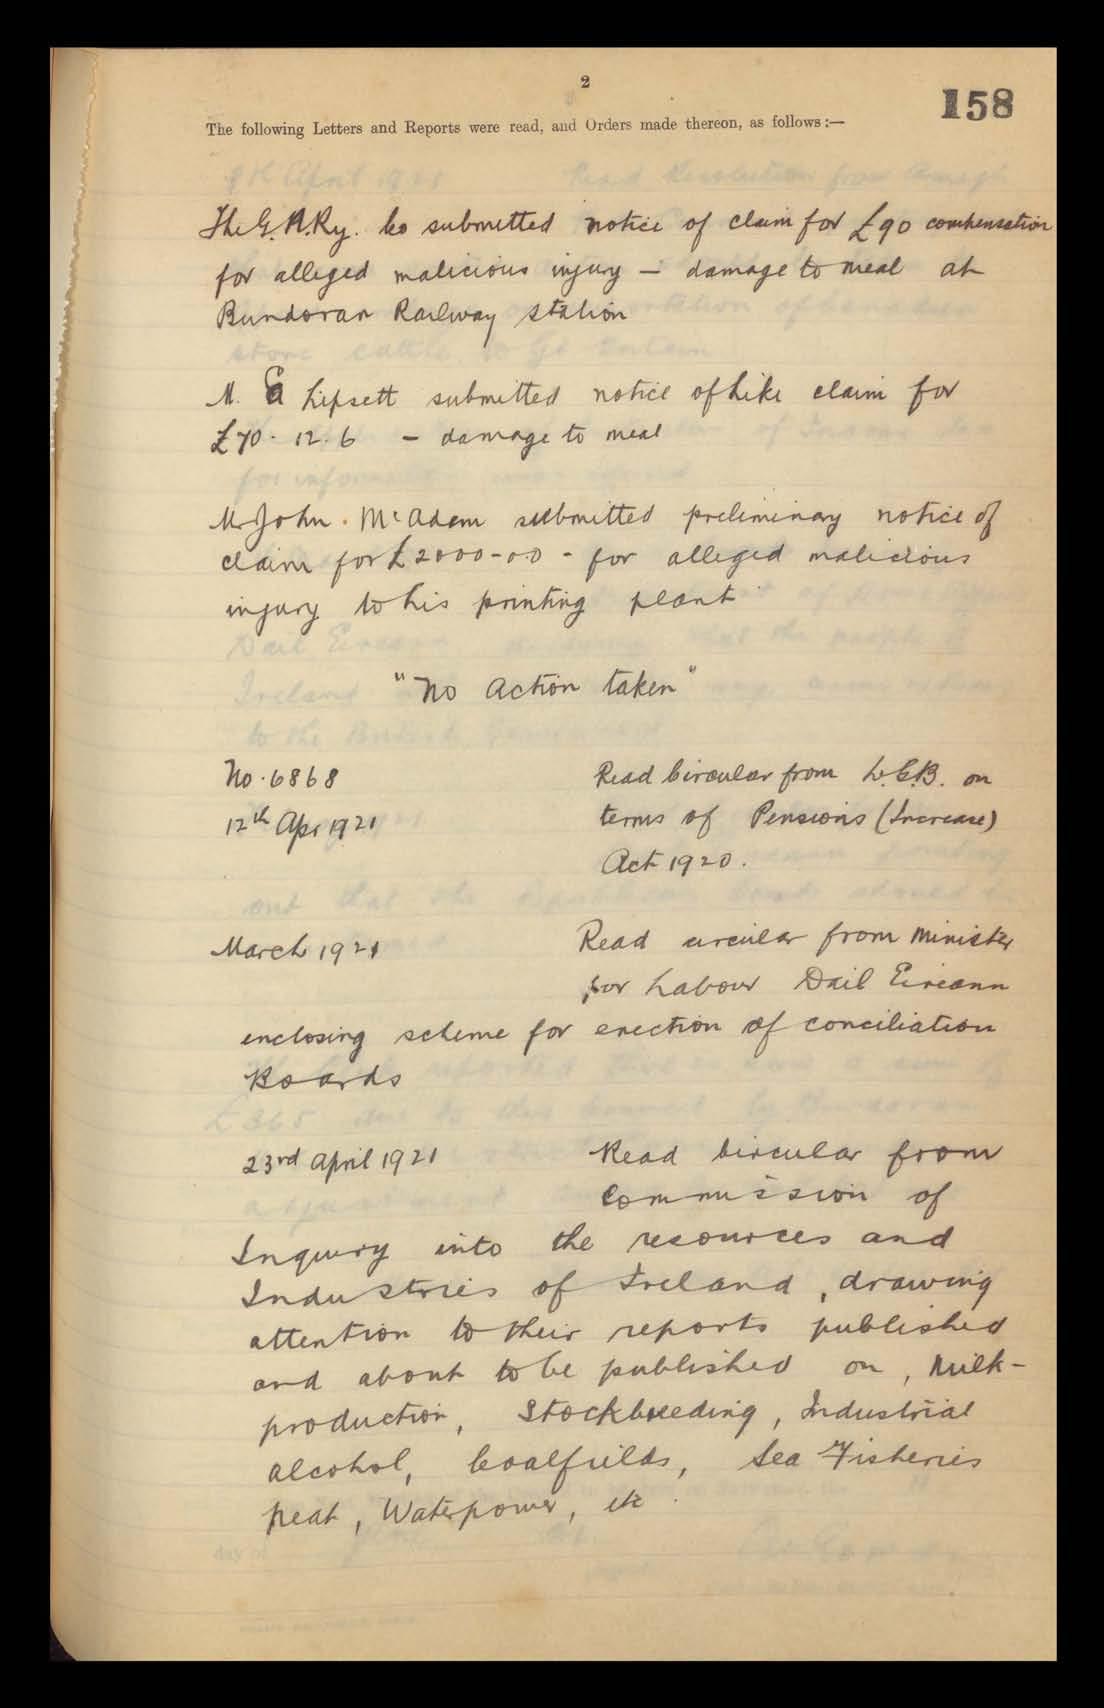 2
158
The following Letters and Reports were read, and Orders made thereon, as follows :—
The G.N.Ry. Co submitted notice of claim for £90 compensation
for alleged malicious injury – damage to meal at
Bundoran Railway station
M. Lipsett submitted notice of like claim for
£70. 12. 6 – damage to meal
Mr John. McAdam submitted preliminary notice of
claim for £2000-0-0 - for alleged malicious
injury to his printing plant
"No Action taken"
No. 6868 Read Circular from L.G.B. on
12th Apr 1921 terms of Pensions (Increase)
Act 1920.
March 1921 Read circular from Minister
for Labour Dail Eireann
enclosing scheme for erection of conciliation
Boards
23rd April 1921 Read Circular from
Commission of
Inquiry into the resources and
Industries of Ireland, drawing
attention to their reports published
and about to be published on, Milk-
production, Stockbreeding, Industrial
alcohol, Coalfields, Sea Fisheries
peat, Waterpower, etc.